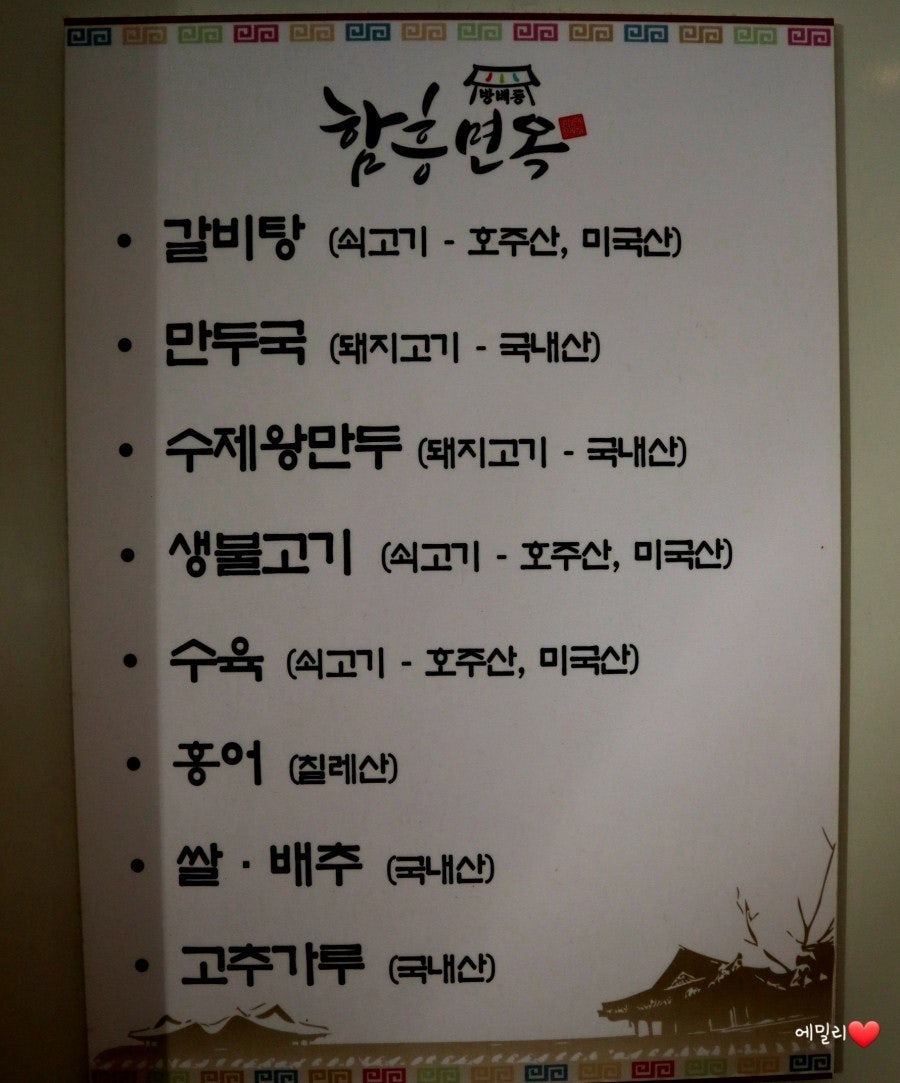 방배동
함흥면옥
• 갈비탕 (쇠고기 - 호주산, 미국산)
• 만두국 (돼지고기 - 국내산)
• 수제왕만두 (돼지고기 - 국내산)
• 생불고기 (쇠고기 - 호주산, 미국산)
• 수육 (쇠고기 - 호주산, 미국산)
• 홍어 (칠레산)
• 쌀 · 배추 (국내산)
• 고추가루 (국내산)
에밀리❤️